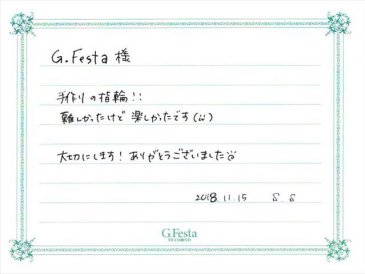 G.Festa 様
手作りの指輪!!
難しかったけど 楽しかったです(ü)
大切にします! ありがとうございました
2018.11.15 S.S
G.Festa